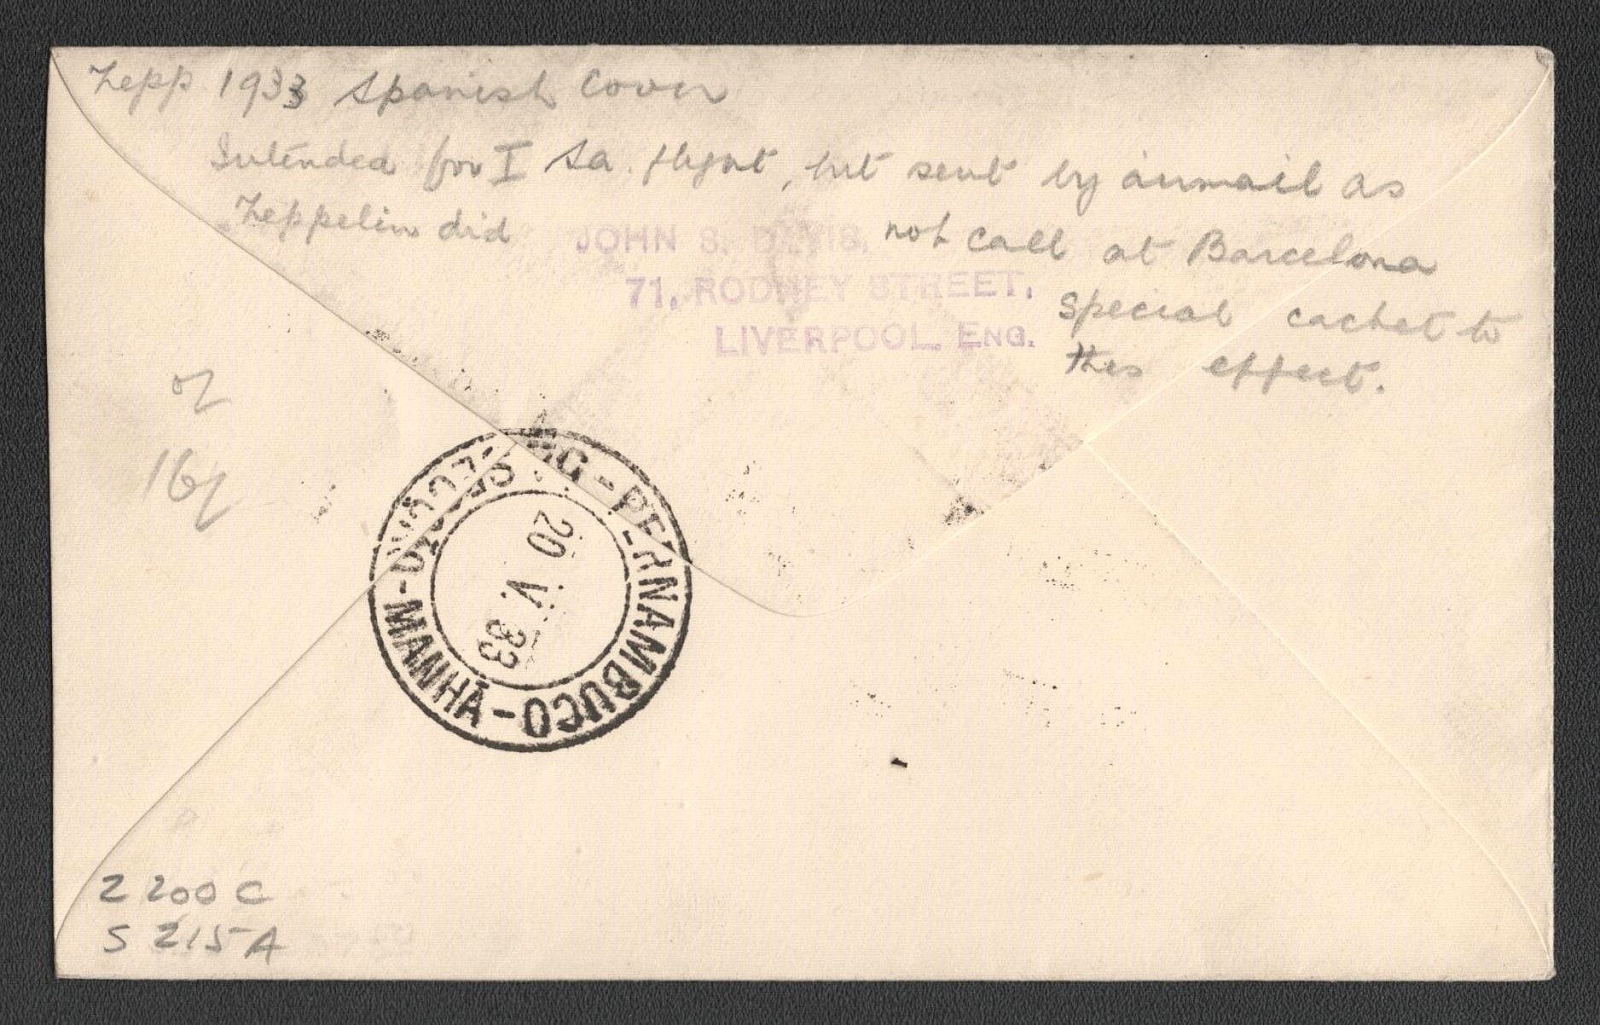 Zepp 1933 Spanish Cover
Intended for I Sa. flight, but sent by airmail as
Zeppelin did not call at Barcelona
special cachet to
this effect.
JOHN S. DAVIS,
71, RODNEY STREET,
LIVERPOOL. ENG.
of
16/
PERNAMBUCO - MANHÃ
20 V. 33
Z 200 C
S 215 A